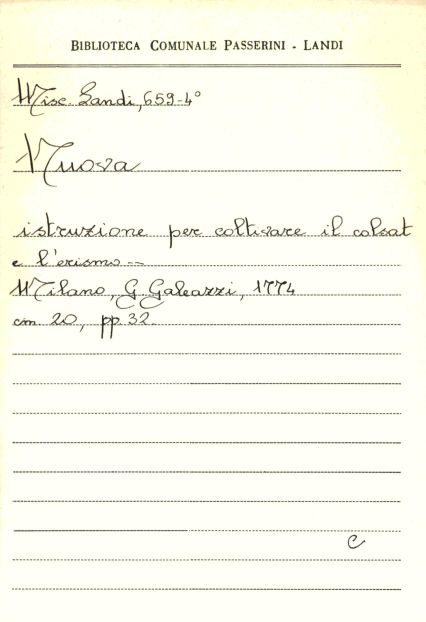 BIBLIOTECA COMUNALE PASSERINI - LANDI
Misc. Landi, 659-4°
Nuova
istruzione per coltivare il colsat
e l'erismo --
Milano, G. Galeazzi, 1774
cm. 20, pp. 32.
C